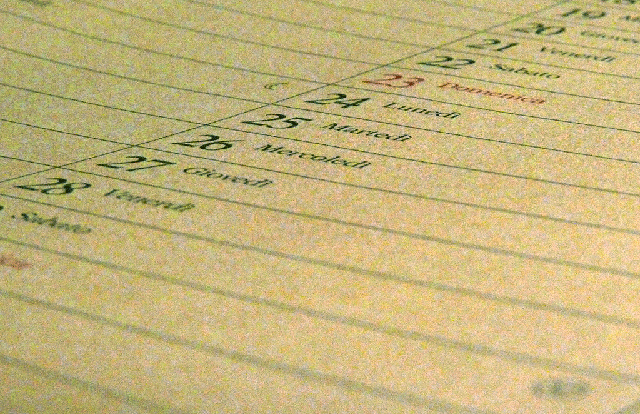 19
20
21 Venerdì
22 Sabato
23 Domenica
24 Lunedì
25 Martedì
26 Mercoledì
27 Giovedì
28 Venerdì
Sabato